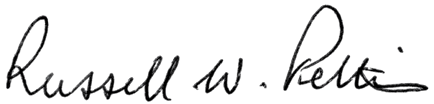 Russell W. Peltis